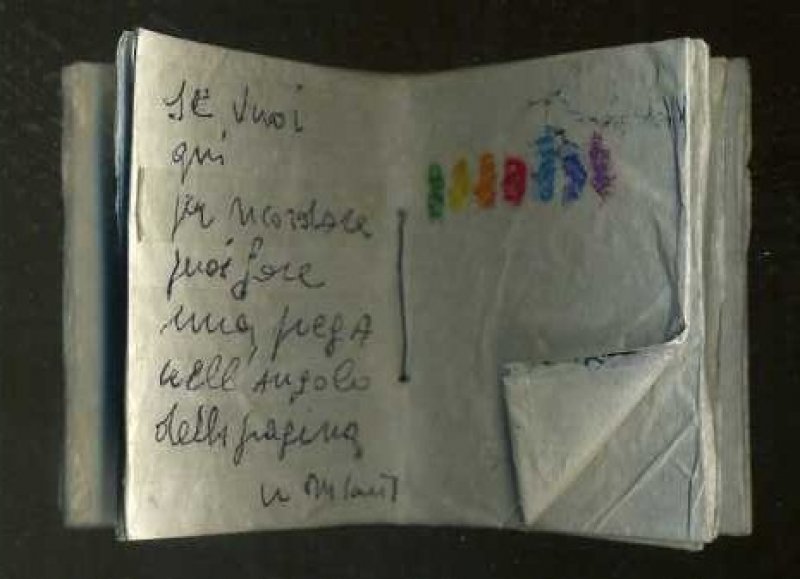 se vuoi
qui
per ricordare
puoi fare
una piega
nell'angolo
della pagina